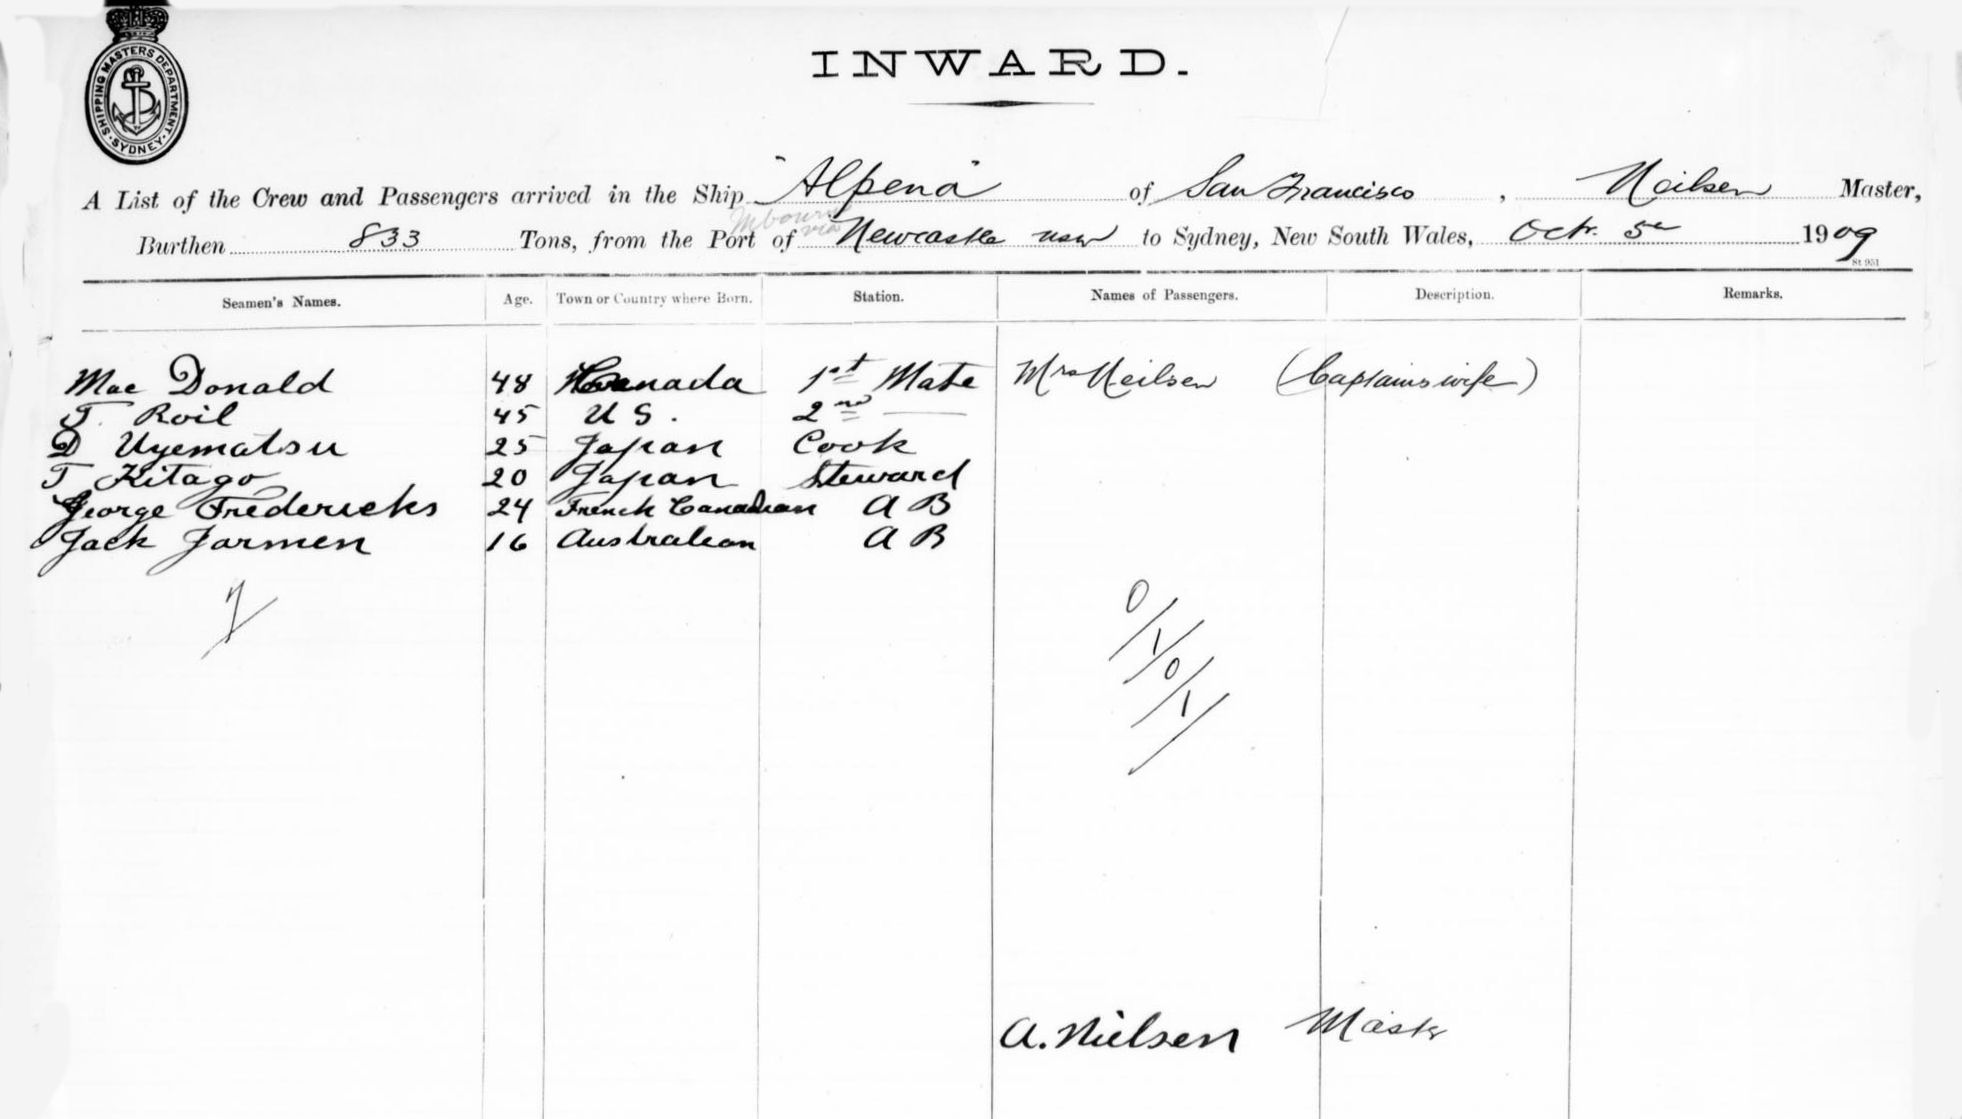 SHIPPING MASTERS DEPARTMENT
SYDNEY
INWARD.
A List of the Crew and Passengers arrived in the Ship "Alpena" of San Francisco, Neilsen Master,
Mbourne via
Burthen 833 Tons, from the Port of Newcastle NSW to Sydney, New South Wales, Octr. 5th 1909
St 951
Seamen's Names. Age. Town or Country where Born. Station. Names of Passengers. Description. Remarks.
Mac Donald 48 Canada 1st Mate Mrs Neilsen (Captains wife)
T. Roil 45 U S. 2nd —
D Uyematsu 25 Japan Cook
T Kitago 20 Japan Steward
George Fredericks 24 French Canadian A B
Jack Jarmen 16 Australian A B
7/
0/1/0/1/
A. Nielsen Master